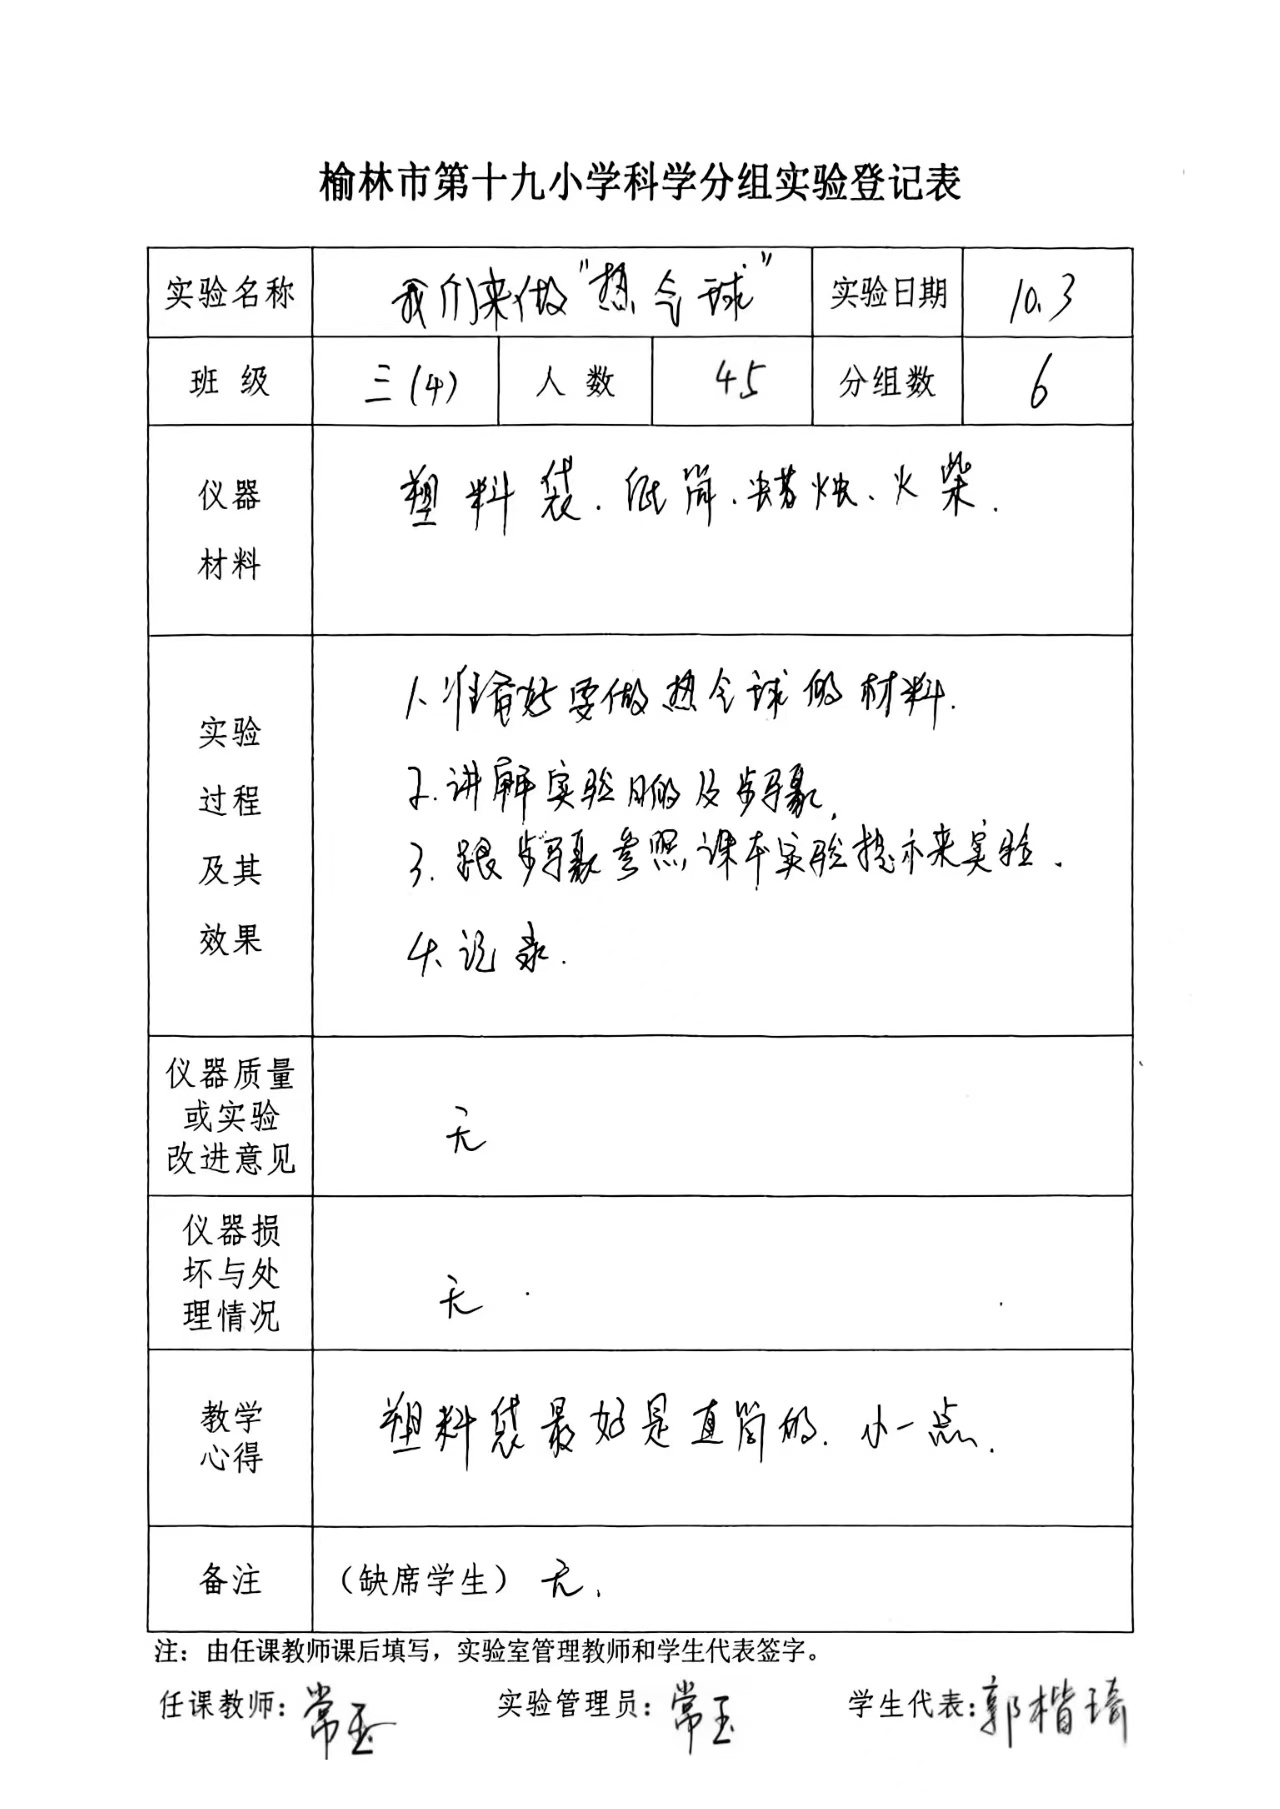 榆林市第十九小学科学分组实验登记表
实验名称 我们来做“热气球” 实验日期 10.3
班级 三(4) 人数 45 分组数 6
仪器
材料
塑料袋、纸筒、蜡烛、火柴.
实验
过程
及其
效果
1、准备好要做热气球的材料.
2.讲解实验目的及步骤.
3.跟步骤参照课本实验提示来实验.
4、记录.
仪器质量
或实验
改进意见
无
仪器损
坏与处
理情况
无
教学
心得
塑料袋最好是直筒的.小一点.
备注 （缺席学生）无.
注：由任课教师课后填写，实验室管理教师和学生代表签字。
任课教师：常玉 实验管理员：常玉 学生代表：郭楷琦